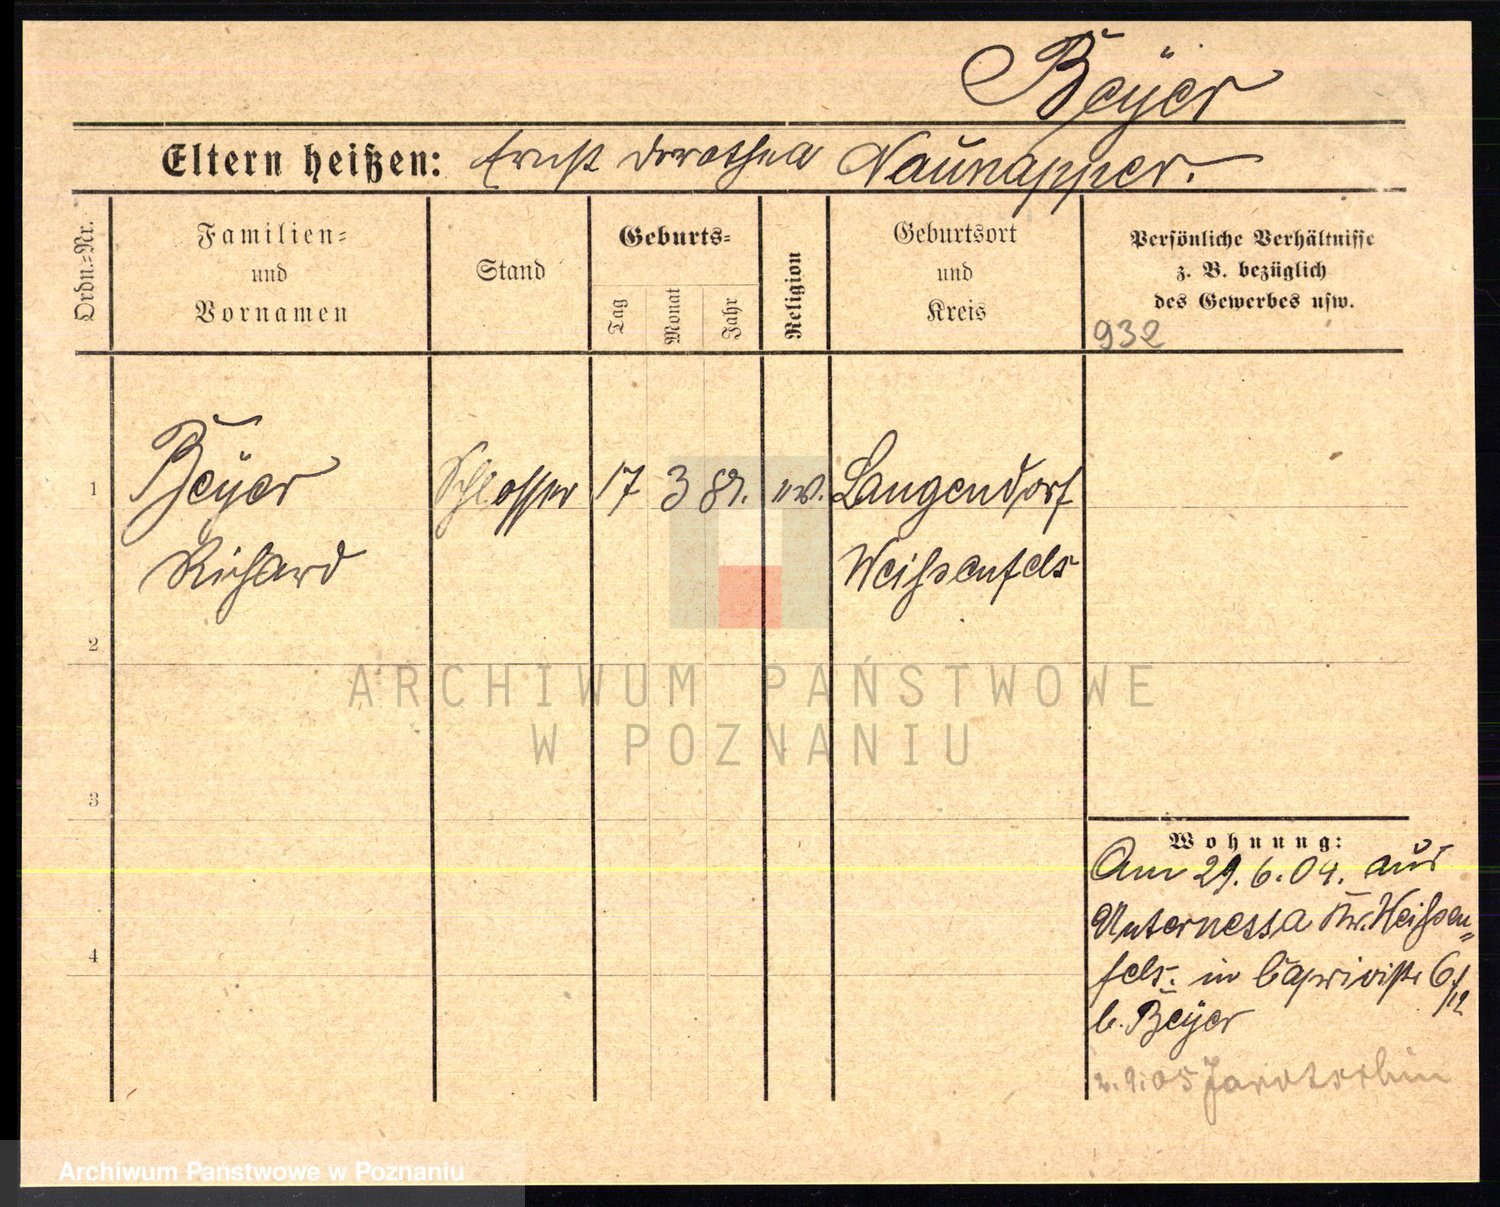 Beÿer
Eltern heißen: Ernst Dorothea Naunapper.
Ordn.=Nr.
Familien=
und
Vornamen
Stand
Geburts=
Tag
Monat
Jahr
Religion
Geburtsort
und
Kreis
Persönliche Verhältnisse
z. B. bezüglich
des Gewerbes usw.
932
1
Beÿer
Richard
Schlosser
17
3
ev.
Langendorf
Weißenfels
2
3
4
Wohnung:
Am 29.6.04. aus
Unternessa Kr. Weißen=
fels. in Caprivistr 6/12
b. Beÿer
05 Jarotschin
ARCHIWUM PAŃSTWOWE
W POZNANIU
Archiwum Państwowe w Poznaniu